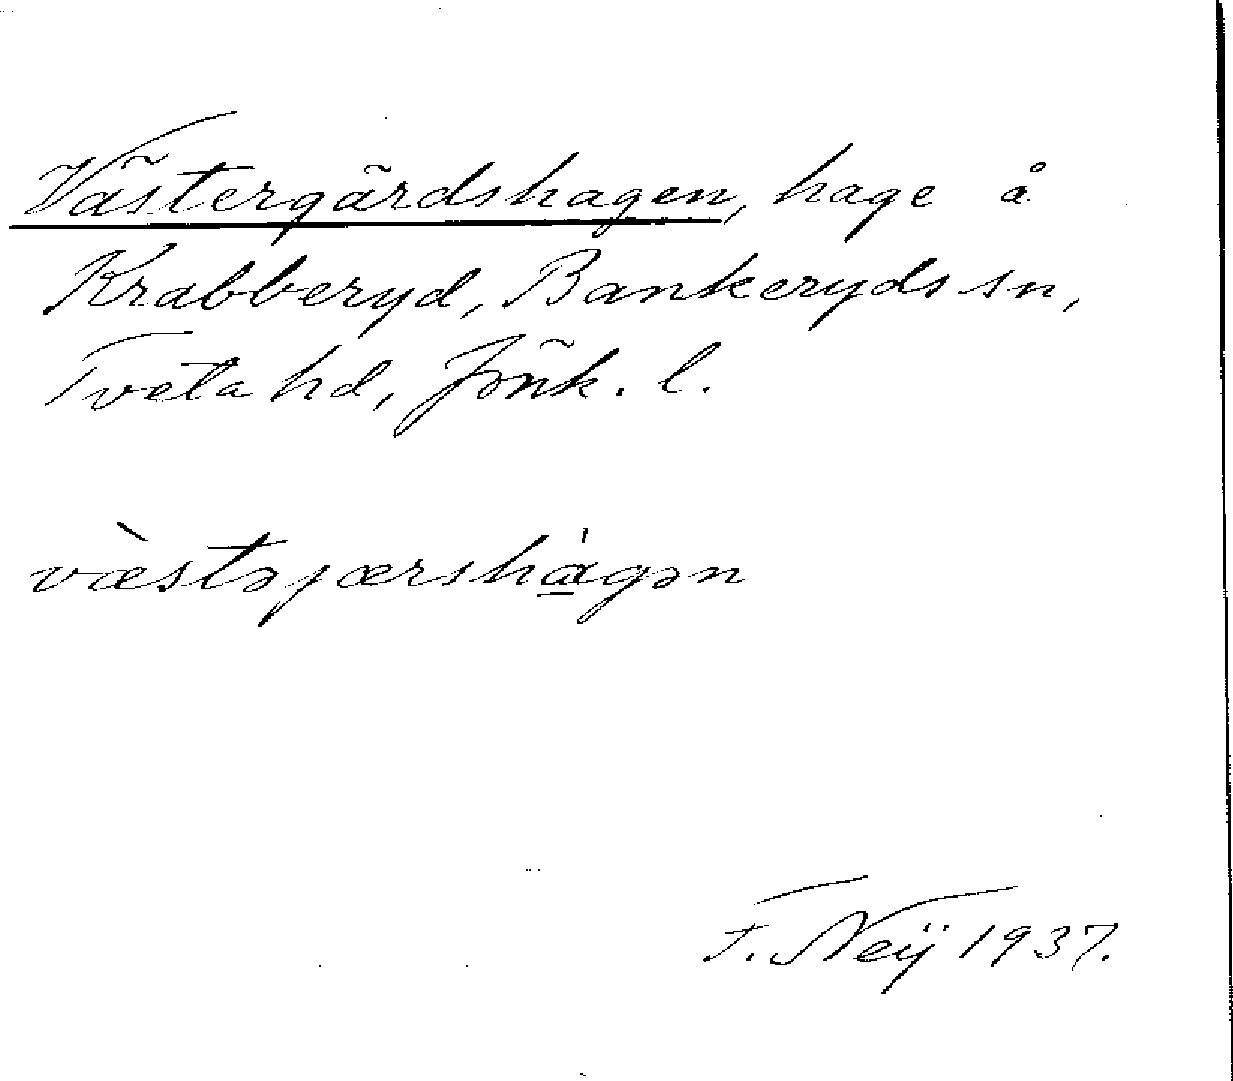 Västergärdshagen, hage å
Krabberyd, Bankeryds sn,
Tveta hd, Jönk. l.
væ̀stəjærshà̲gən
F. Neÿ 1937.